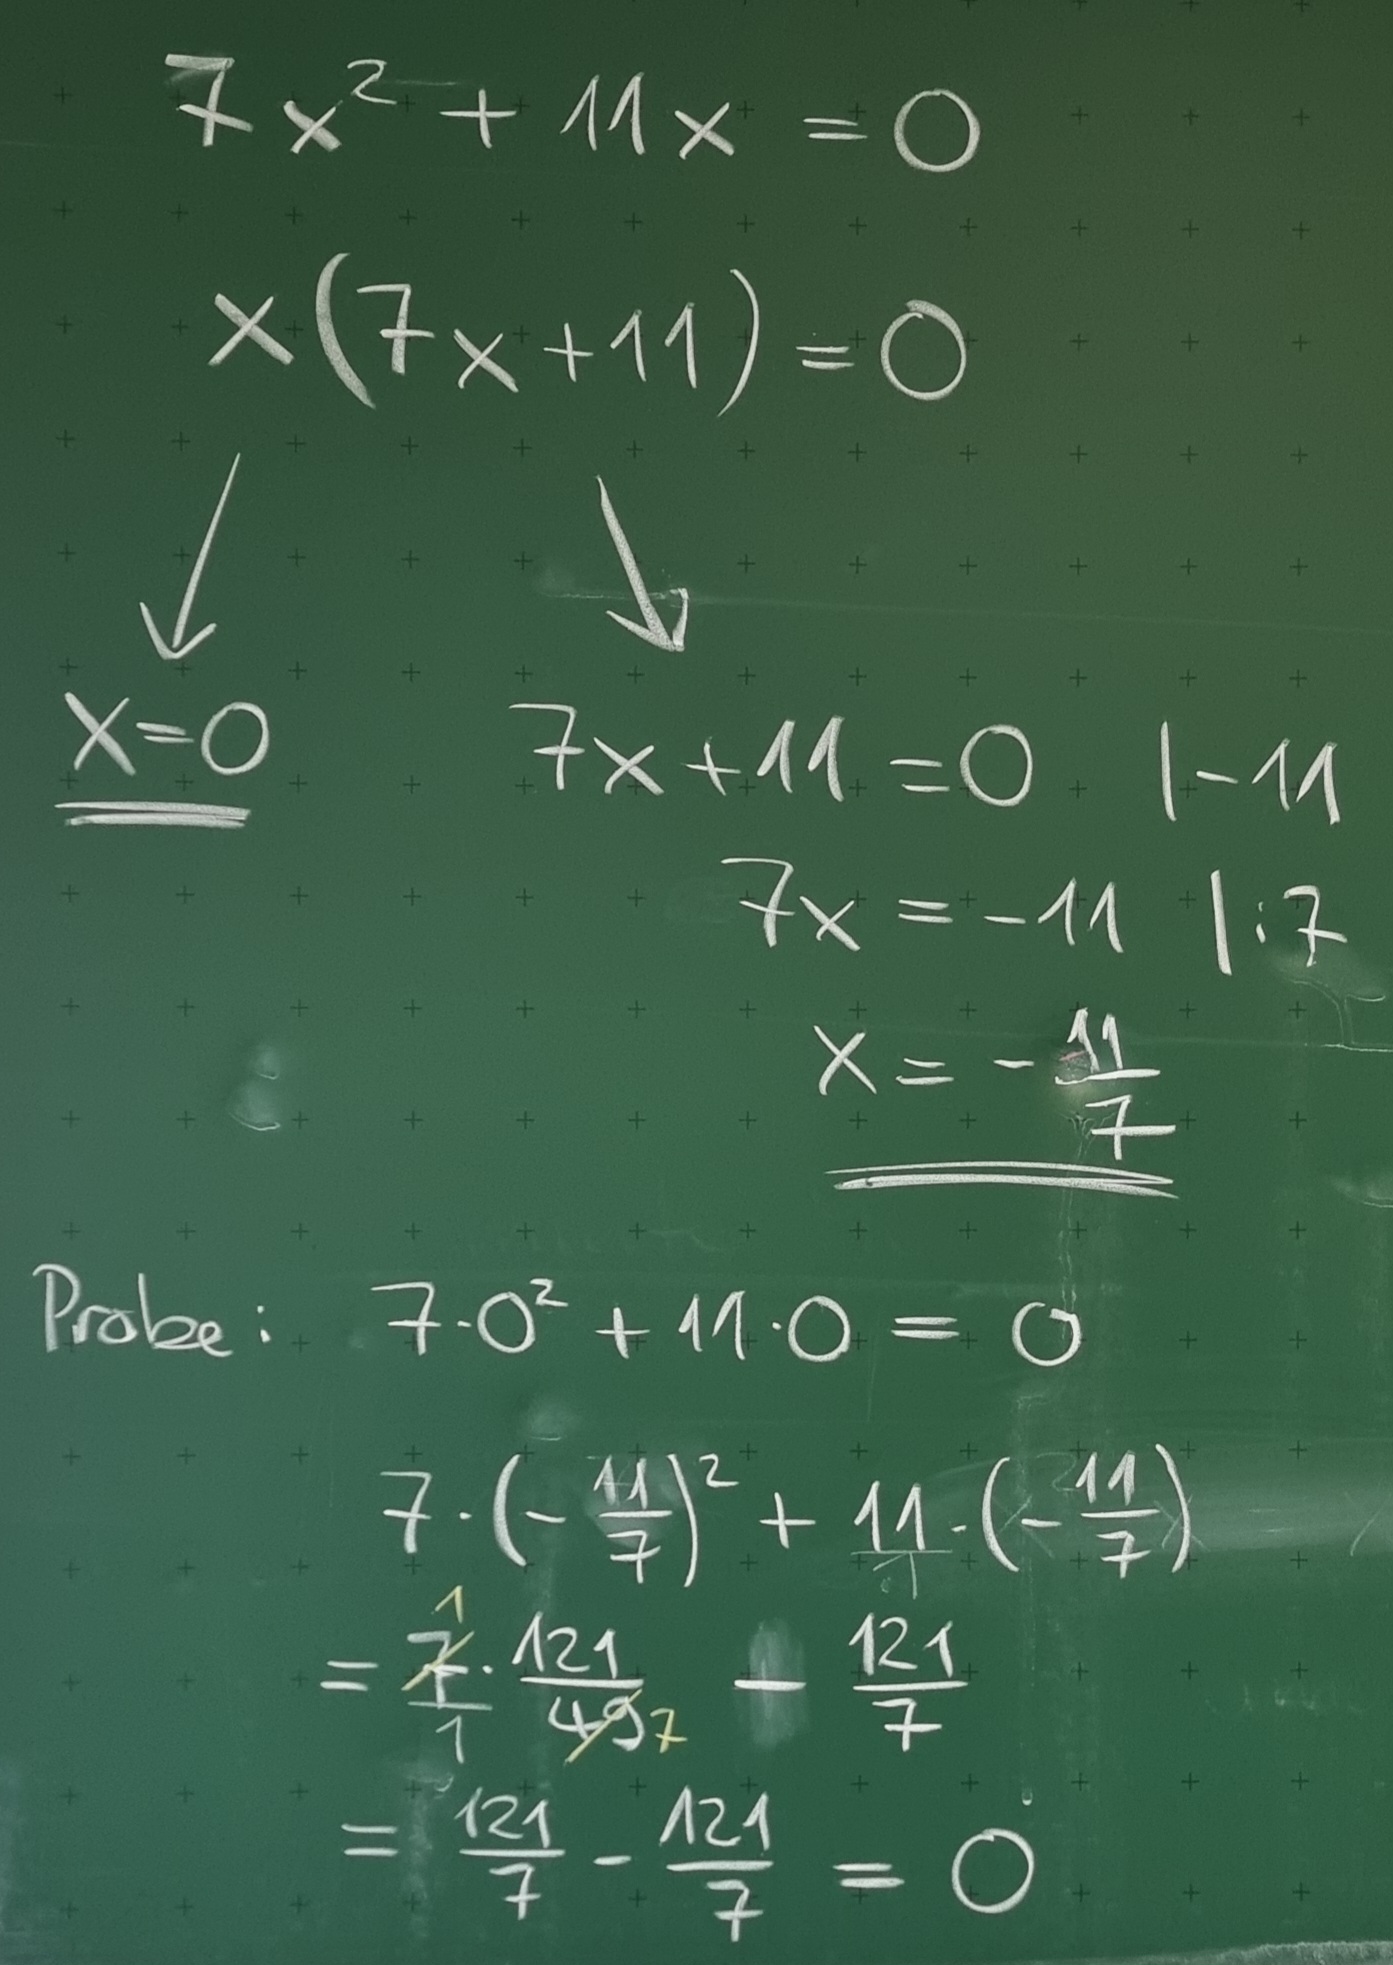 7x² + 11x = 0
x(7x+11) = 0
x=0
7x+11=0 |-11
7x = -11 |:7
x = - 11/7
Probe: 7·0² + 11·0 = 0
7·(-11/7)² + 11·(-11/7)
= 7/1 · 121/49 - 121/7
1 7
= 121/7 - 121/7 = 0